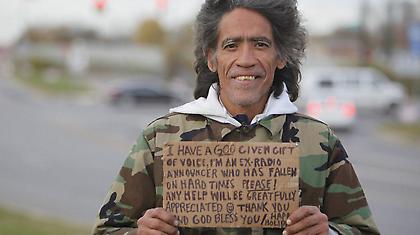 I HAVE A GOD GIVEN GIFT
OF VOICE. I'M AN EX-RADIO
ANNOUNCER WHO HAS FALLEN
ON HARD TIMES. PLEASE!
ANY HELP WILL BE GREATFULLY
APPRECIATED ☺ THANK YOU
AND GOD BLESS YOU. / HAPPY
HOLIDAY